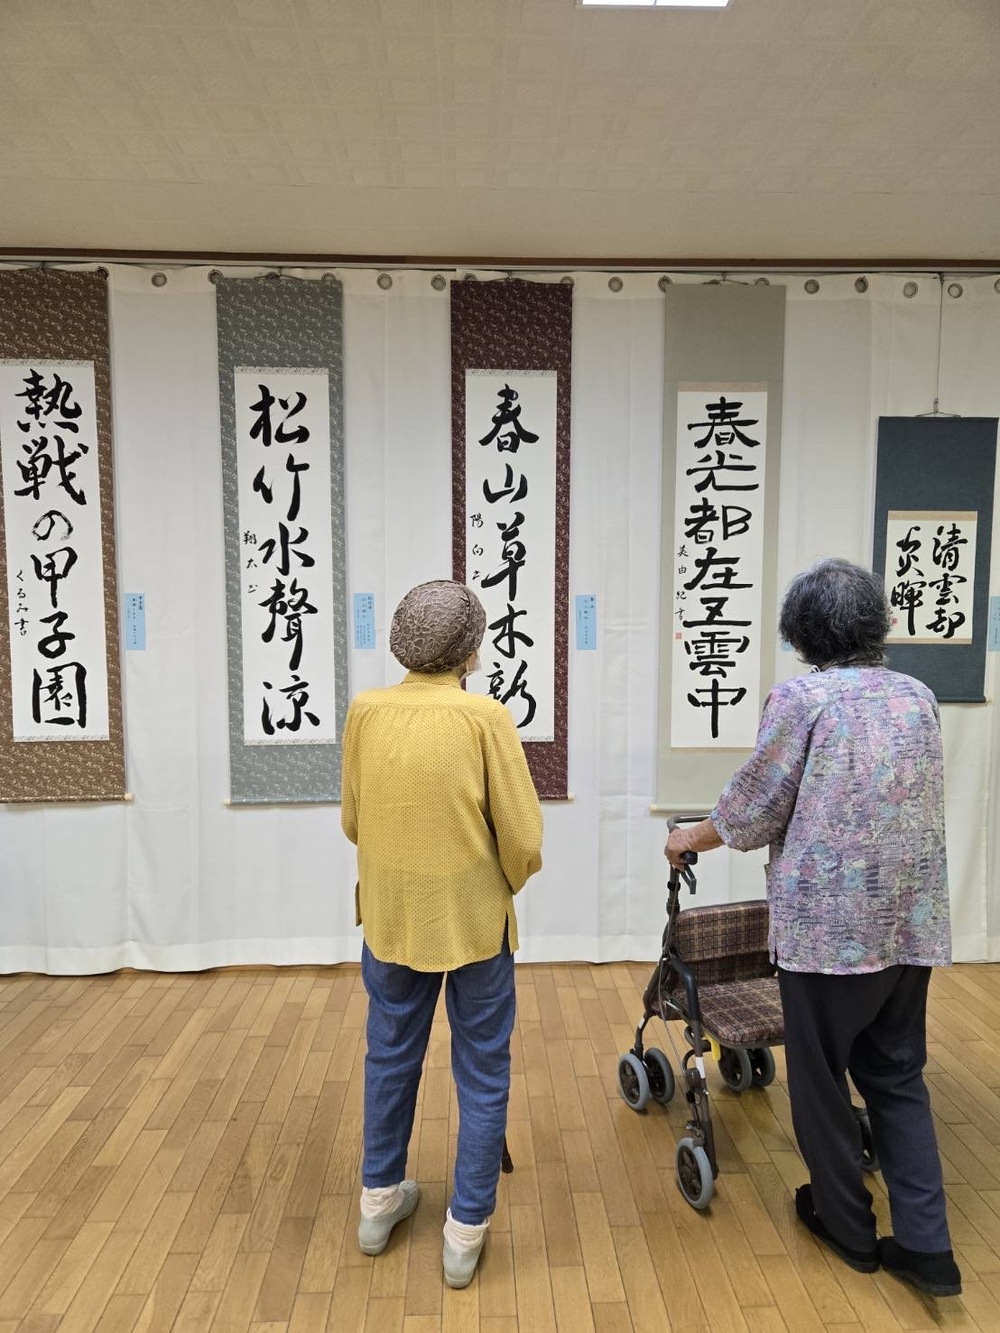 熱戦の甲子園
くるみ書
松竹水聲涼
翔太書
春山草木新
陽向書
春光都在五雲中
美由紀書
清雲却
炎暉